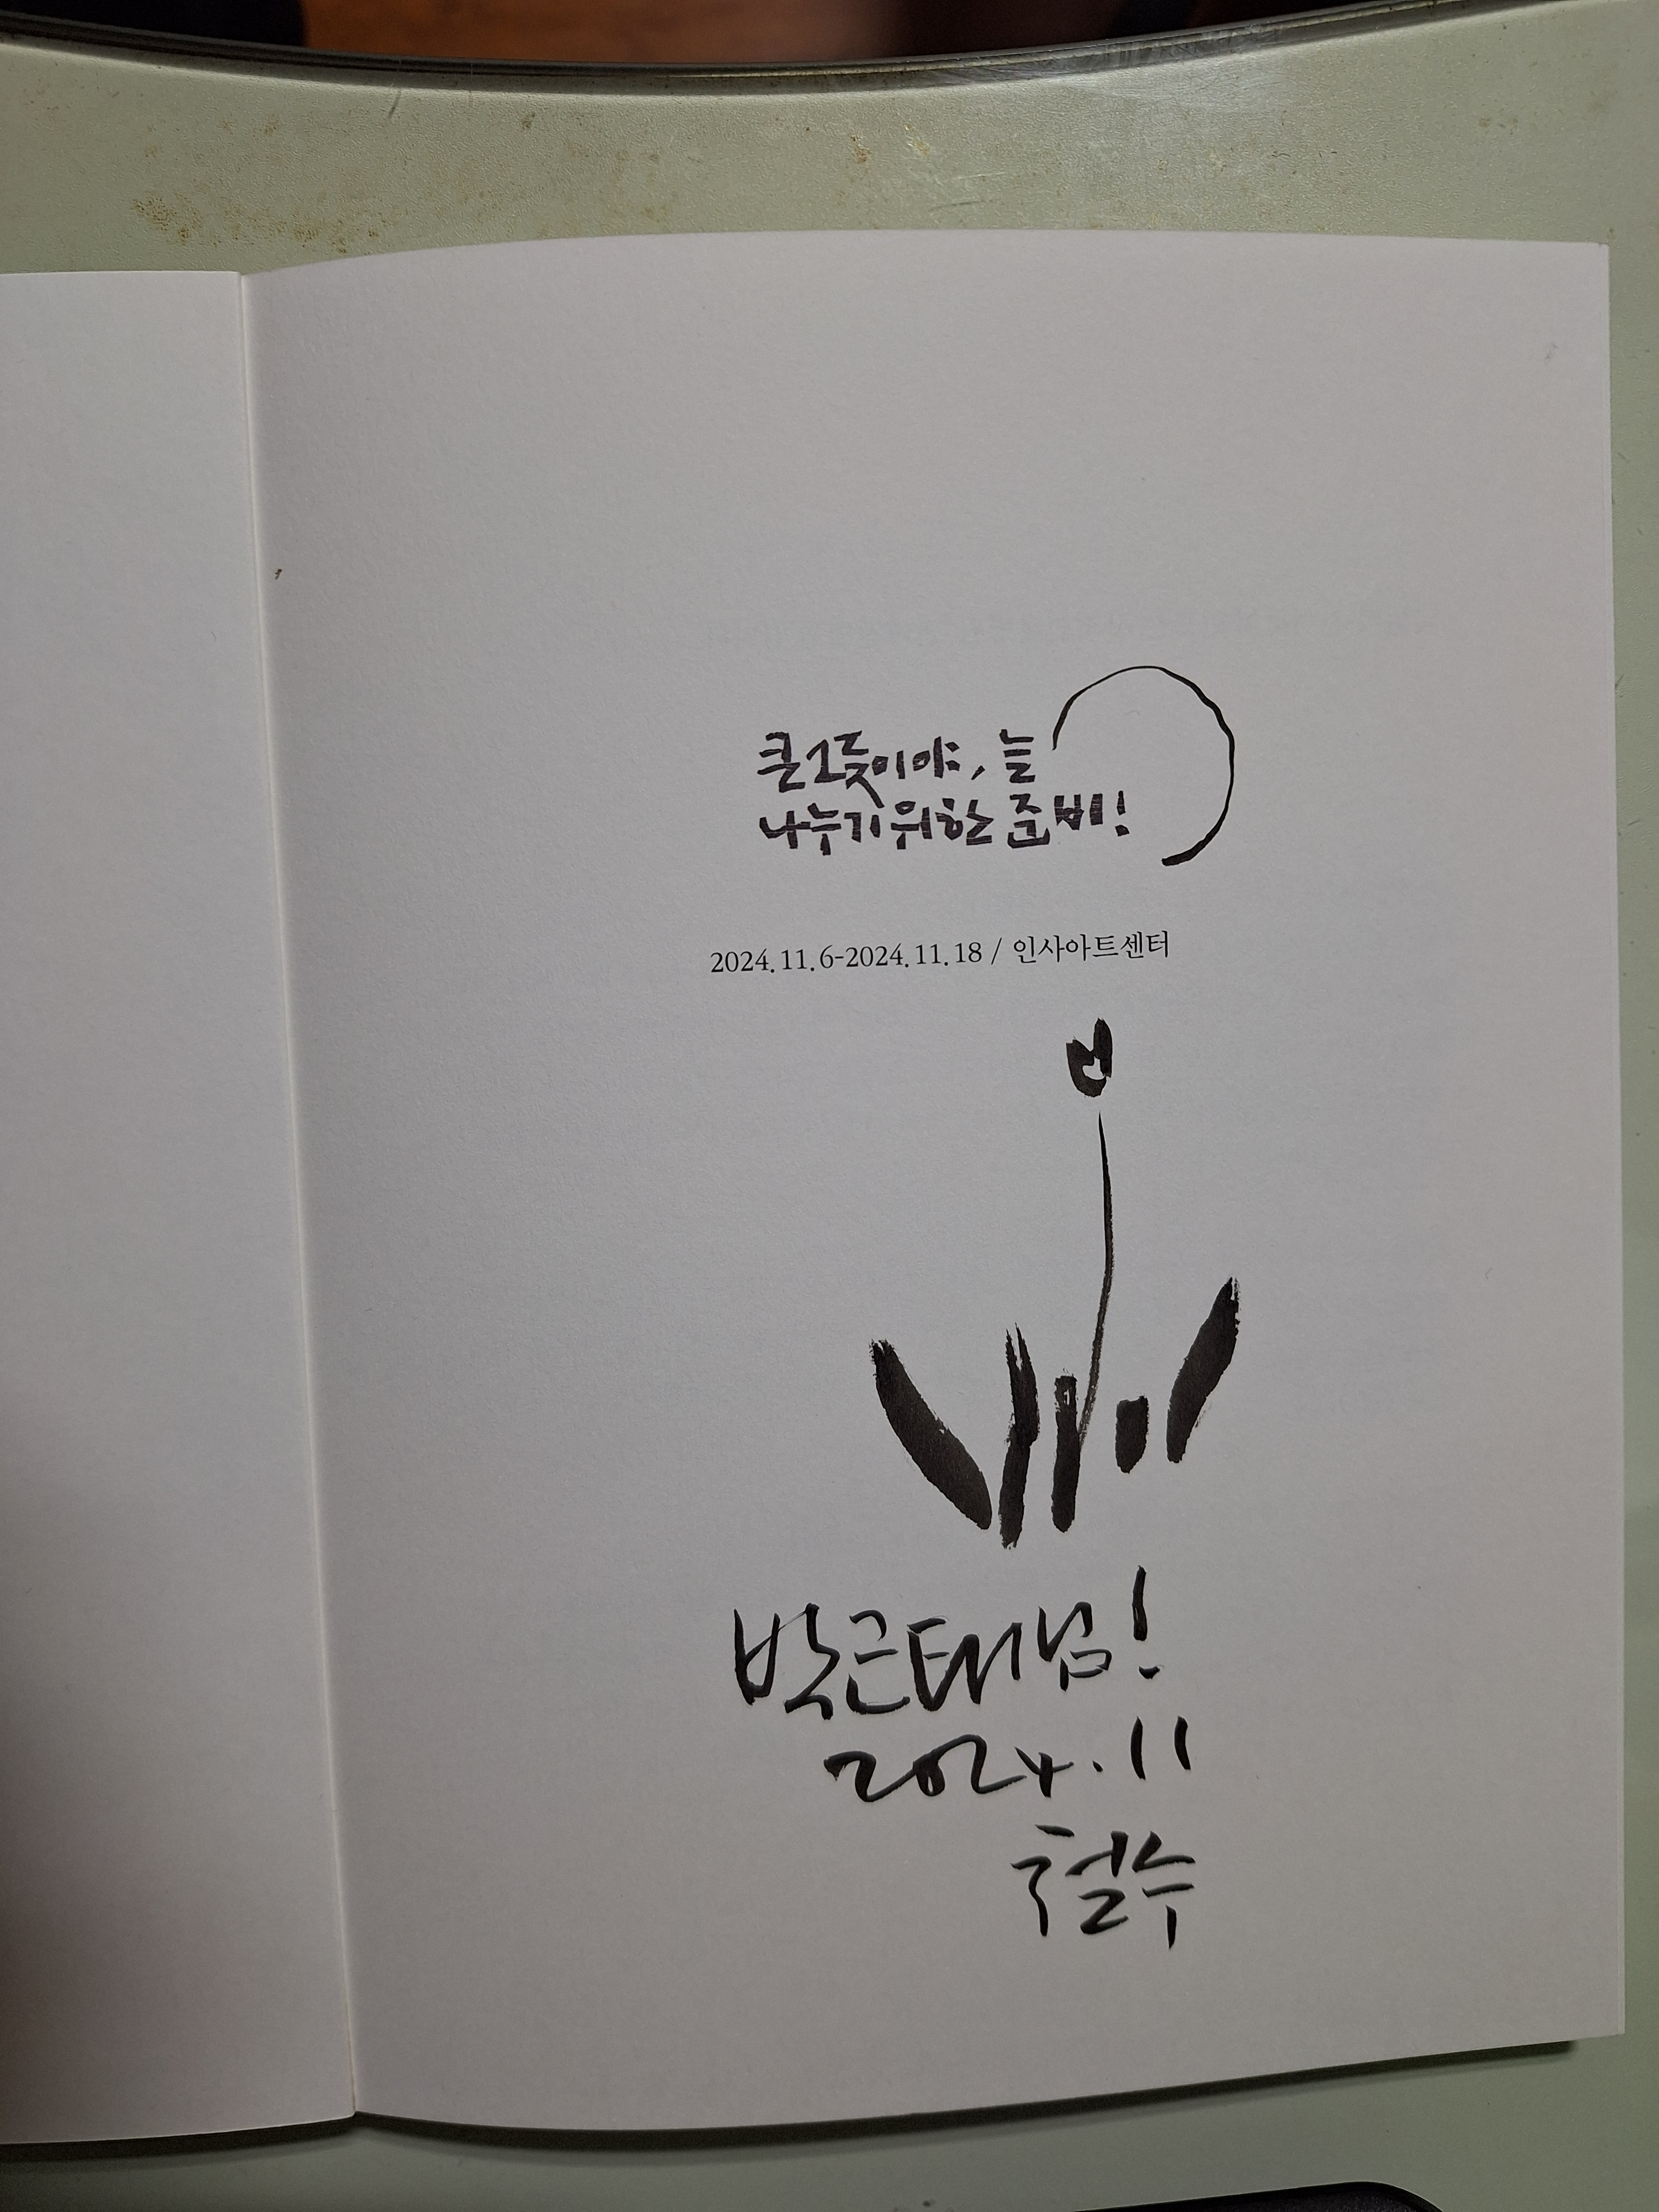 큰그릇이야, 늘
나누기 위한 준비!
2024.11.6-2024.11.18 / 인사아트센터
박근태님!
2024.11
철수